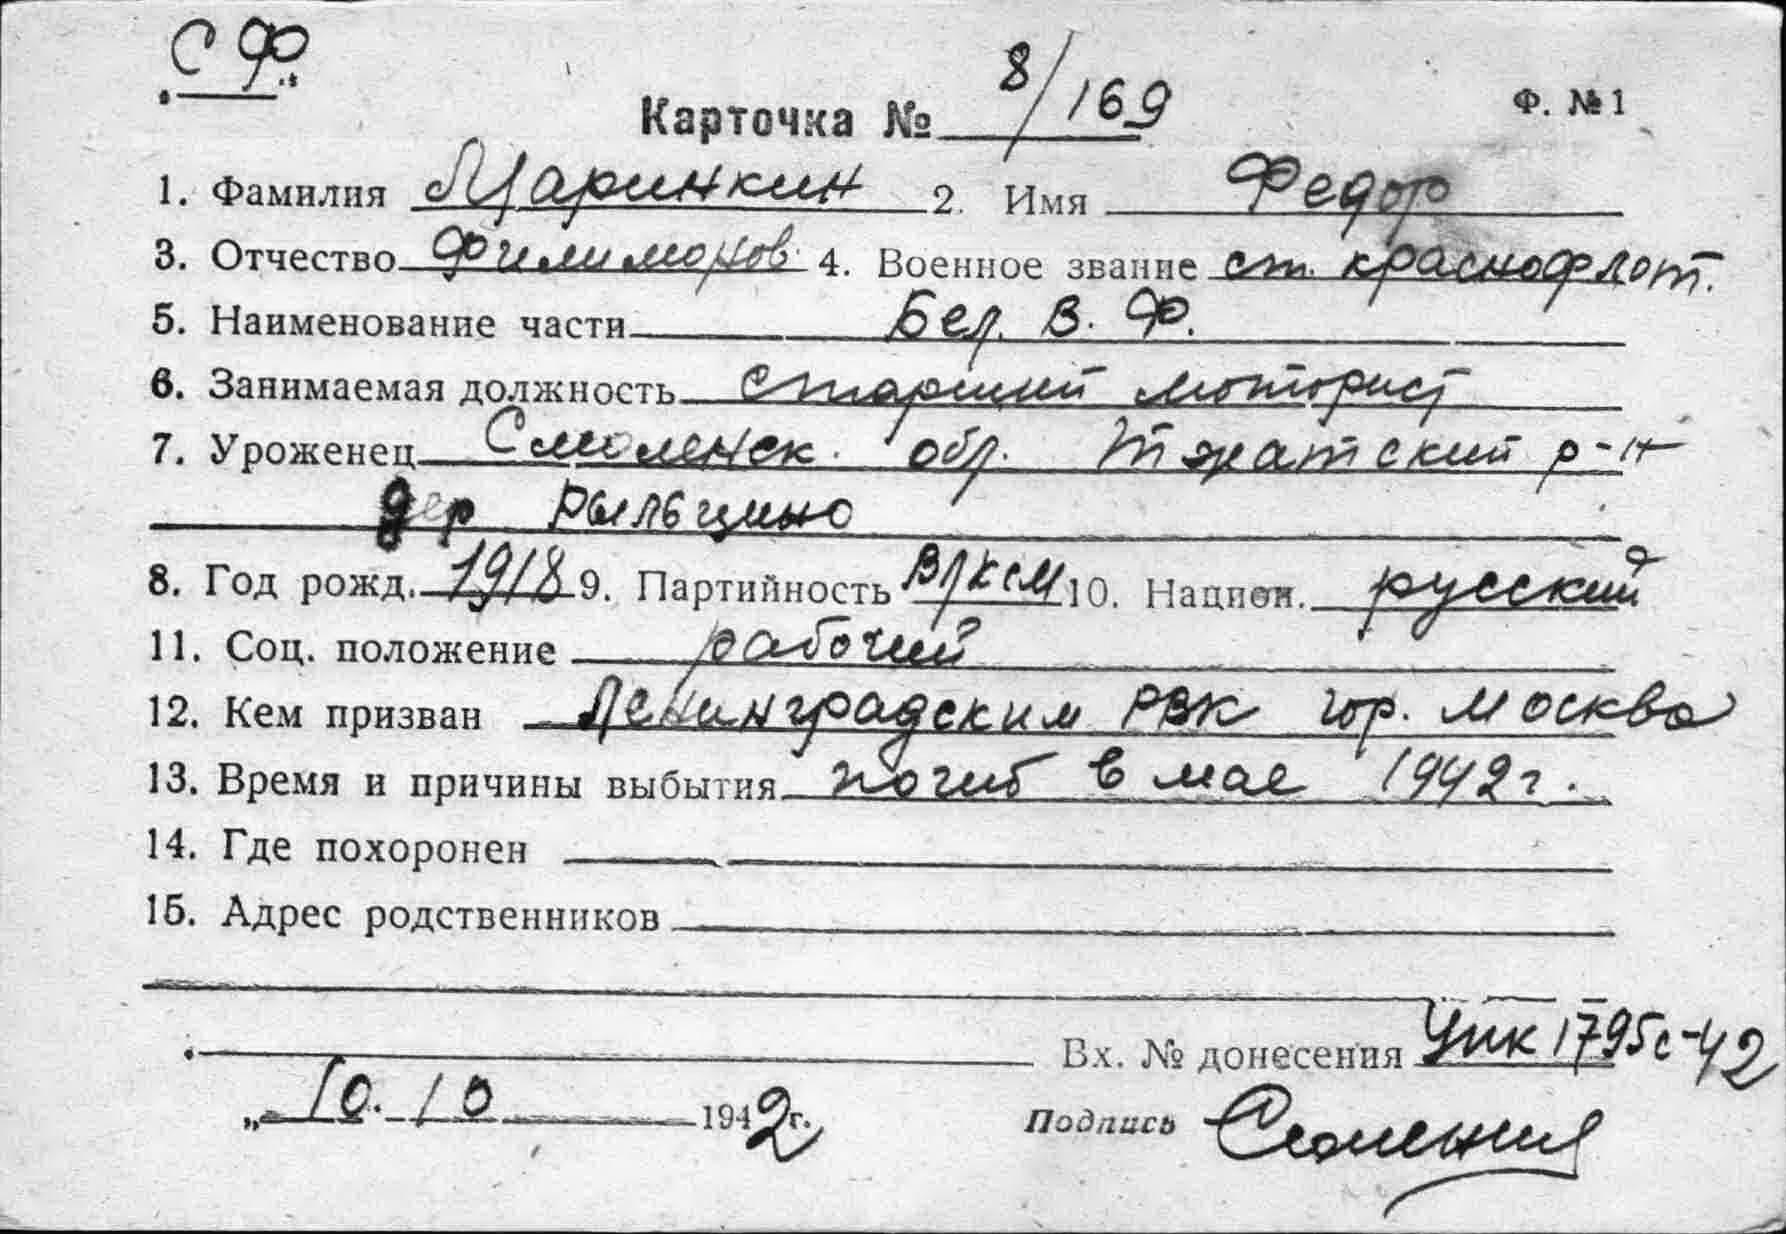 СФ.
Карточка № 8/169
Ф. № 1
1. Фамилия Маринкин 2. Имя Федор
3. Отчество Филимонов. 4. Военное звание ст. краснофлот.
5. Наименование части Бел. В. Ф.
6. Занимаемая должность старший моторист
7. Уроженец Смоленск. обл. Гжатский р-н
дер Рыльцино
8. Год рожд. 1918 9. Партийность ВЛКСМ 10. Национ. русский
11. Соц. положение рабочий
12. Кем призван Ленинградским РВК гор. Москва
13. Время и причины выбытия погиб в мае 1942 г.
14. Где похоронен
15. Адрес родственников
Вх. № донесения 1795с-42
„ 10. 10 1942 г. Подпись